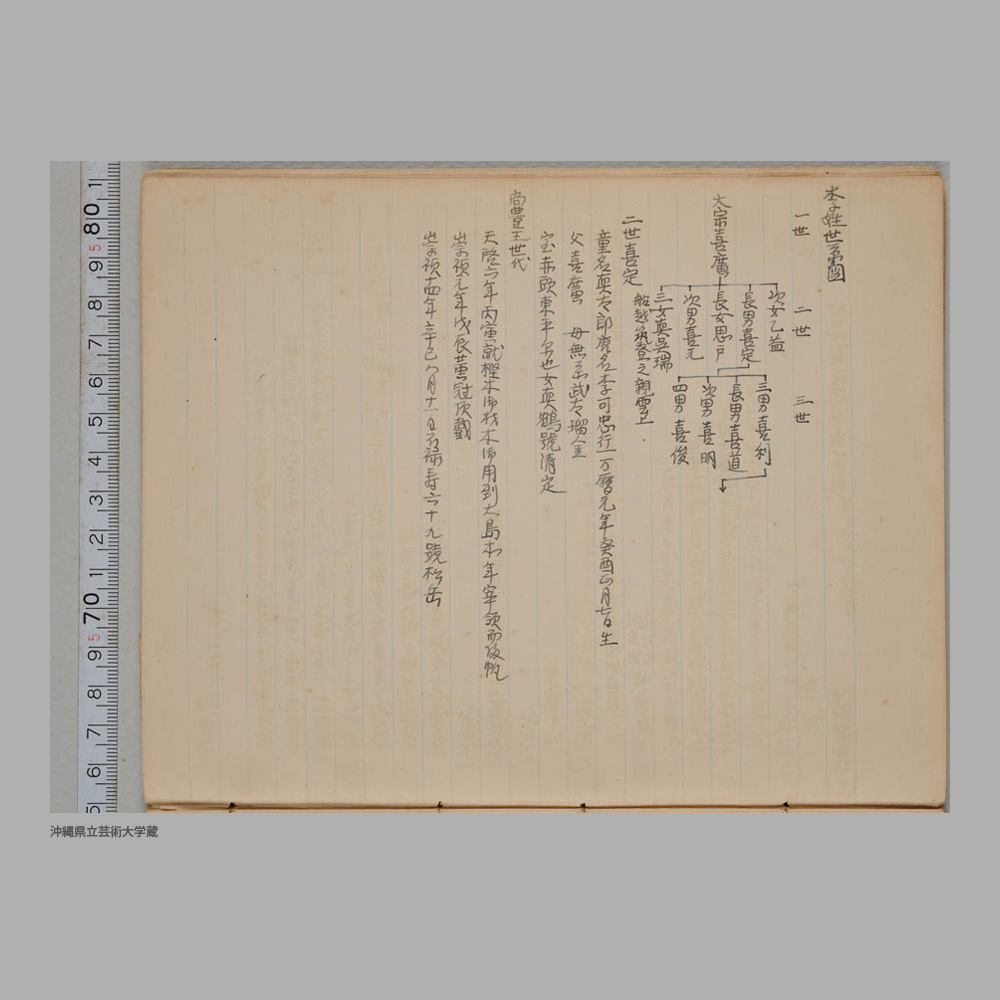 李姓世系図
一世　二世　三世
大宗喜廣
次女乙益
長男喜定
長女思戸
次男喜元
三女真呉瑞
船越筑登之親雲上
三男喜利
長男喜道
次男喜明
四男喜俊
二世喜定
童名真太郎唐名李可忠行一万暦元年癸酉正月七日生
父喜廣　母無系武太瑠金
室赤頭東平也女真鶴號清定
尚豊王世代
天啓六年丙寅就樫木御材木御用到大島本年宰領而皈帆
崇禎元年戊辰黄冠頂戴
崇禎十四年辛巳八月十一日不禄寿六十九號松岳
80 1 2 3 4 5 6 7 8 9
70 1
5
沖縄県立芸術大学蔵